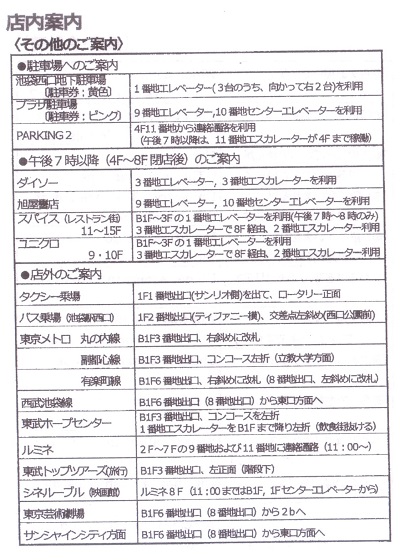 店内案内
〈その他のご案内〉
●駐車場へのご案内
池袋西口地下駐車場
（駐車券：黄色）
1番地エレベーター(3台のうち、向かって右2台)を利用
プラザ駐車場
（駐車券：ピンク）
9番地エレベーター,10番地センターエレベーターを利用
PARKING2
4F11番地から連絡通路を利用
（午後7時以降は、11番地エスカレーターが4Fまで稼働）
●午後7時以降（4F～8F閉店後）のご案内
ダイソー
3番地エレベーター,3番地エスカレーターを利用
旭屋書店
9番地エレベーター,10番地センターエレベーターを利用
スパイス（レストラン街）
11～15F
B1F～3Fの1番地エレベーターを利用(午後7時～8時のみ)
3番地エスカレーターで8F経由、2番地エスカレーター利用
ユニクロ
9・10F
B1F～3Fの1番地エレベーターを利用
3番地エスカレーターで8F経由、2番地エスカレーター利用
●店外のご案内
タクシー乗場
1F1番地出口(サンリオ側)を出て、ロータリー正面
バス乗場（池袋駅西口）
1F2番地出口(ティファニー横)、交差点左斜め(西口公園前)
東京メトロ　丸の内線
B1F3番地出口、右斜めに改札
副都心線
B1F3番地出口、コンコース左折（立教大学方面）
有楽町線
B1F6番地出口、右斜めに改札（8番地出口、左斜めに改札）
西武池袋線
B1F6番地出口（8番地出口）から東口方面へ
東武ホープセンター
B1F3番地出口、コンコースを左折
1番地エスカレーターをB1Fまで降り左折（飲食街抜ける）
ルミネ
2F～7Fの9番地および11番地に連絡通路（11：00～）
東武トップツアーズ(旅行)
B1F3番地出口、左正面（階段下）
シネルーブル（映画館）
ルミネ8F（11：00まではB1F,1Fセンターエレベーターから）
東京芸術劇場
B1F6番地出口（8番地出口）から2bへ
サンシャインシティ方面
B1F6番地出口（8番地出口）から東口方面へ